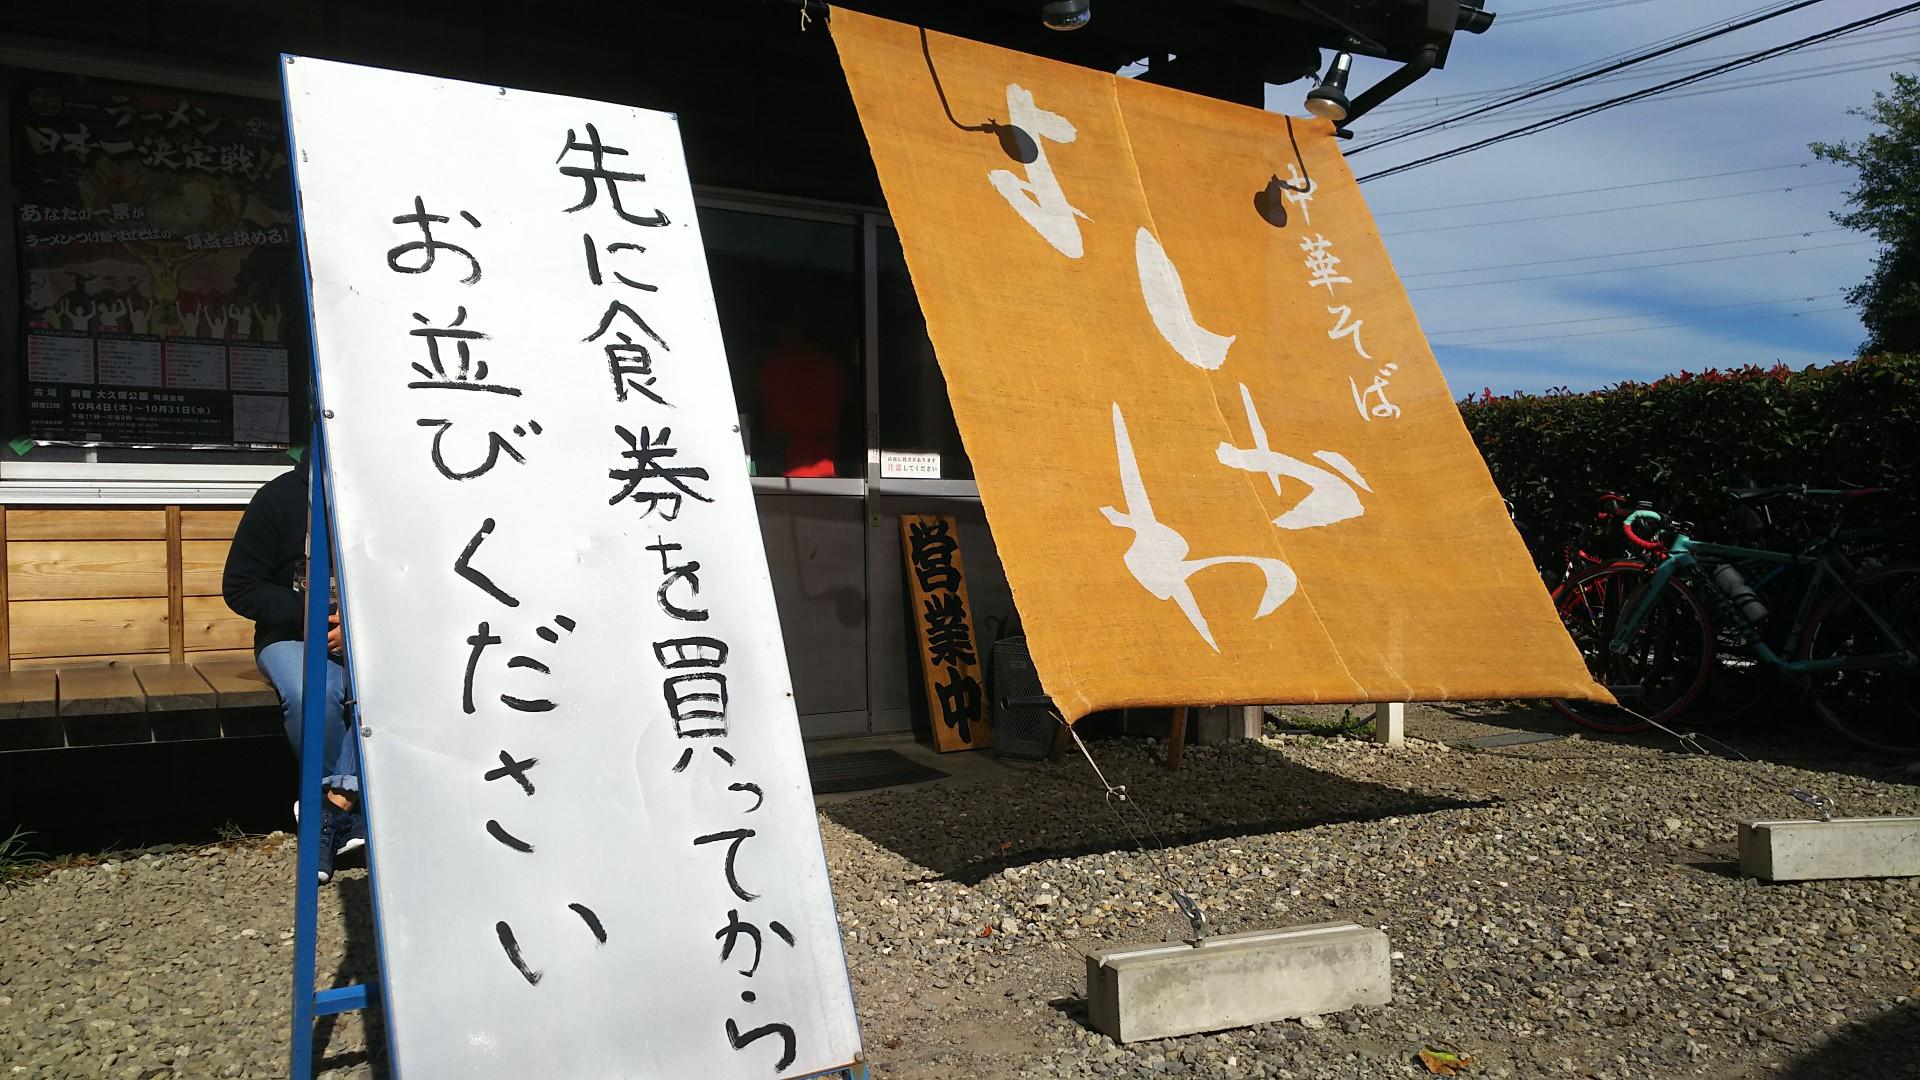 先に食券を買ってから
お並びください
中華そば
よしかわ
営業中
ラーメン
日本一決定戦!!
あなたの一票が
ラーメン・つけ麺・まぜそばの頂点を決める!
会場 新宿 大久保公園 特設会場
開催日時 10月4日(木)〜10月31日(水)
注意してください